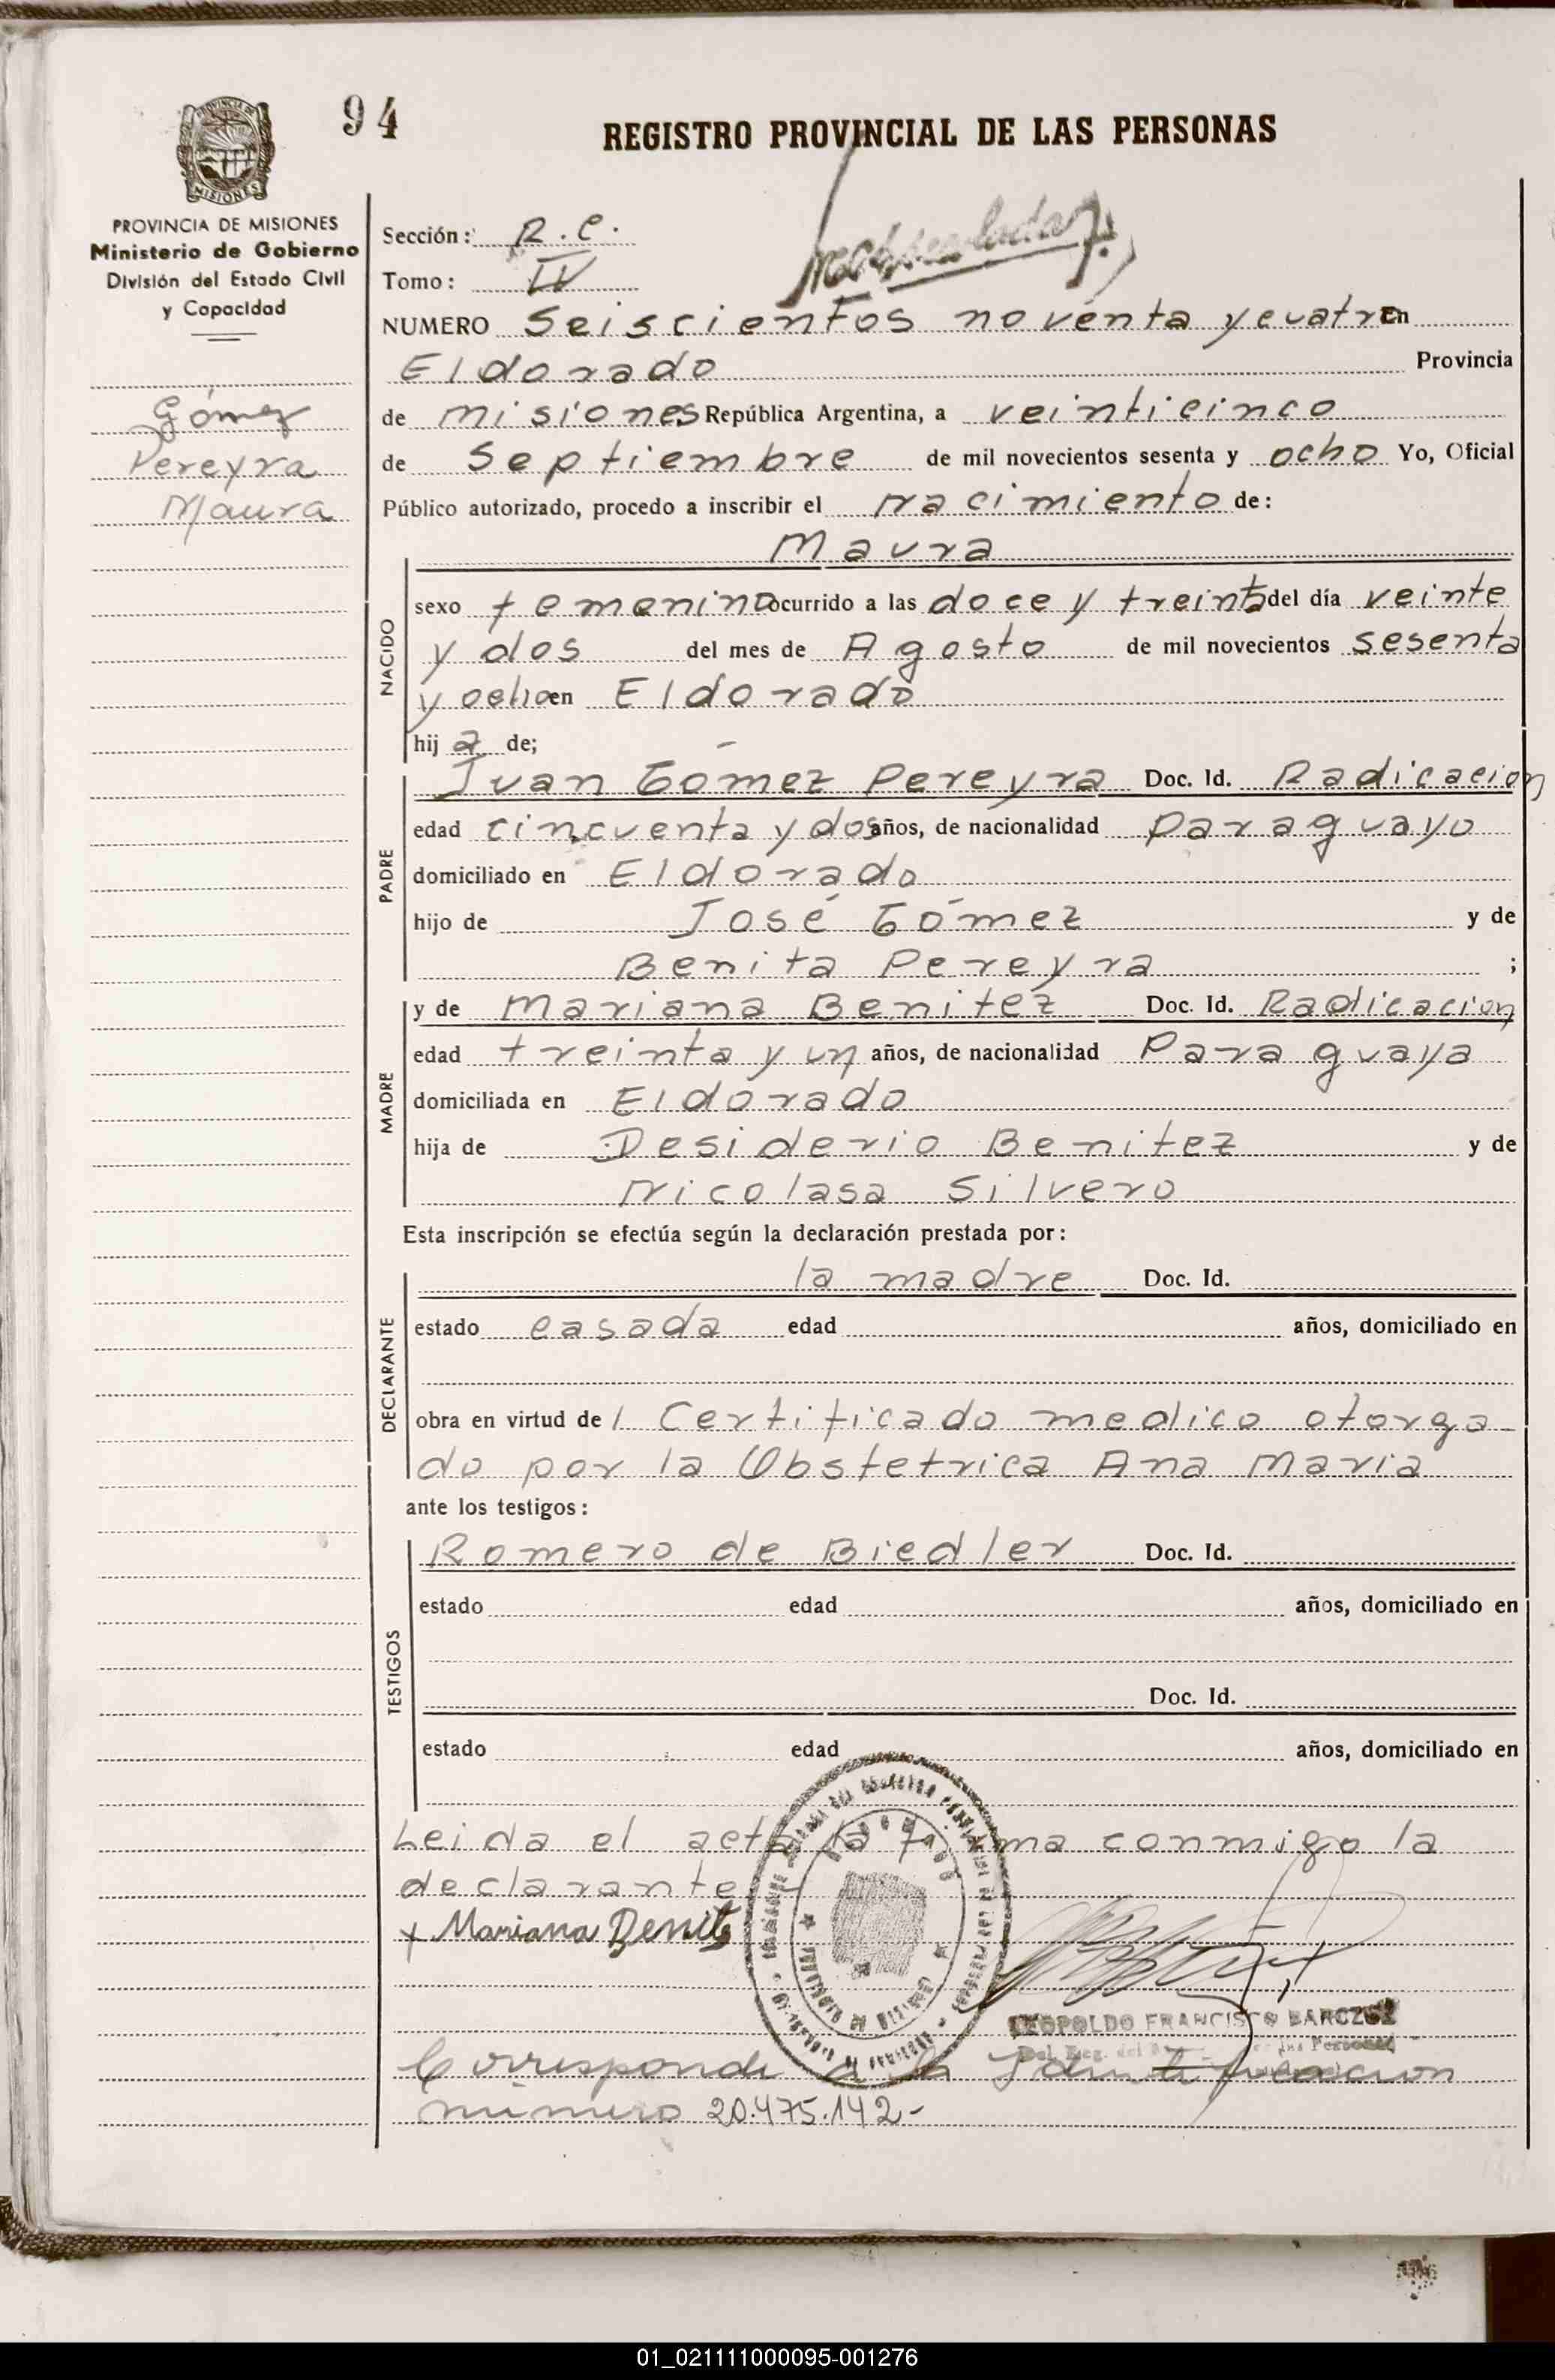 94
REGISTRO PROVINCIAL DE LAS PERSONAS
PROVINCIA DE MISIONES
Ministerio de Gobierno
División del Estado Civil
y Capacidad
Gómez
Pereyra
Maura
Sección: R.C.
Tomo: IV
NUMERO Seiscientos noventa y cuatro En
Eldorado Provincia
de misiones República Argentina, a veinticinco
de Septiembre de mil novecientos sesenta y ocho Yo, Oficial
Público autorizado, procedo a inscribir el nacimiento de:
Maura
NACIDO
sexo femenino ocurrido a las doce y treinta del día veinte
y dos del mes de Agosto de mil novecientos sesenta
y ocho en Eldorado
hij a de;
PADRE
Juan Gómez Pereyra Doc. Id. Radicacion
edad cincuenta y dos años, de nacionalidad paraguayo
domiciliado en Eldorado
hijo de José Gómez y de
Benita Pereyra ;
MADRE
y de Mariana Benitez Doc. Id. Radicacion
edad treinta y un años, de nacionalidad Paraguaya
domiciliada en Eldorado
hija de Desiderio Benitez y de
Nicolasa Silvero
Esta inscripción se efectúa según la declaración prestada por:
DECLARANTE
la madre Doc. Id.
estado casada edad años, domiciliado en
obra en virtud de 1 Certificado medico otorga
do por la Obstetrica Ana Maria
ante los testigos:
TESTIGOS
Romero de Biedler Doc. Id.
estado edad años, domiciliado en
Doc. Id.
estado edad años, domiciliado en
Leida el acta la firma conmigo la
declarante
x Mariana Benites
LEOPOLDO FRANCISCO
Corresponde a la Identificacion
número 20.475.142-
01_021111000095-001276